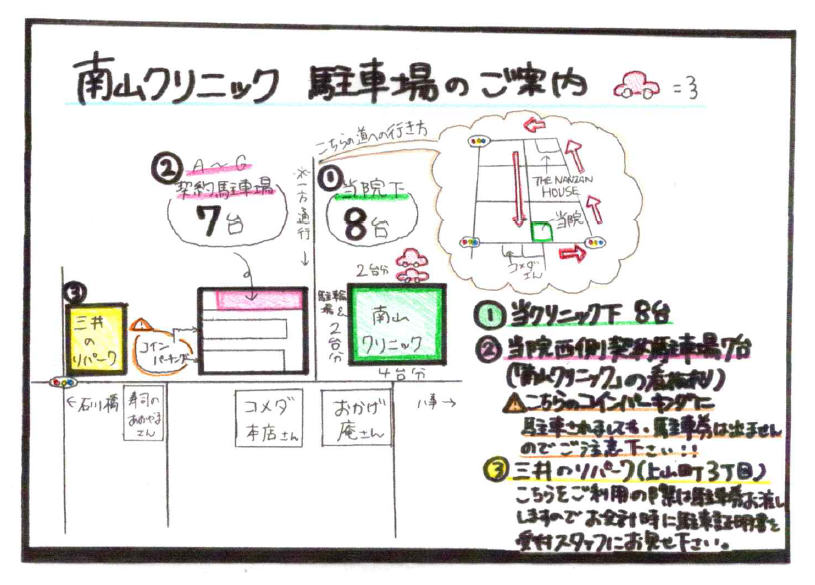 南山クリニック 駐車場のご案内 =3
こちらの道への行き方
② A～G
契約駐車場
7台
※一方通行
① 当院下
8台
THE NANZAN
HOUSE
当院
コメダ
さん
2台分
駐輪場&2台分
南山
クリニック
4台分
③
三井
の
リパーク
コイン
パーキング
←石川橋
寿司の
さん
コメダ
本店さん
おかげ
庵さん
八事→
① 当クリニック下 8台
② 当院西側契約駐車場7台
(「南山クリニック」の看板有り)
こちらのコインパーキングに
駐車されましても、駐車券は出ません
のでご注意下さい!!
③ 三井のリパーク(上山町3丁目)
こちらをご利用の際は駐車券お渡し
しますのでお会計時に駐車証明書を
受付スタッフにお見せ下さい。